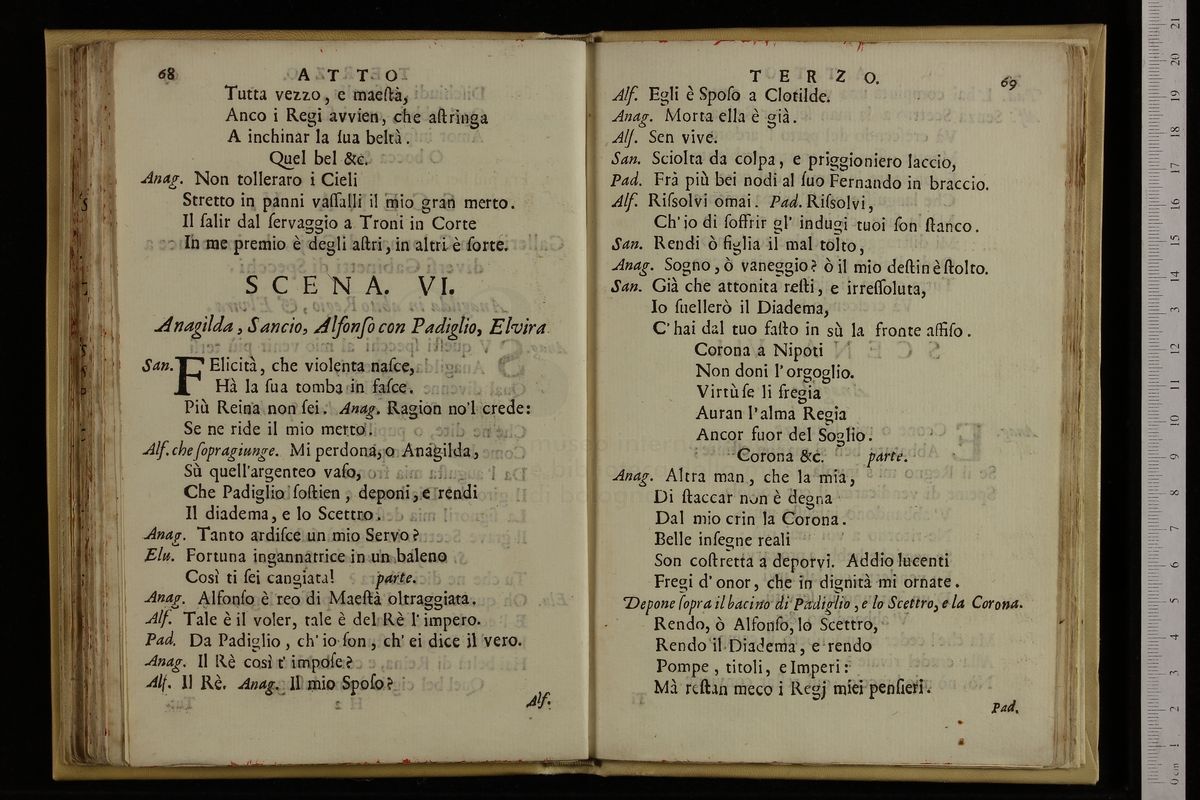 68 ATTO
Tutta vezzo, e maeſtà,
Anco i Regi avvien, che aſtringa
A inchinar la ſua beltà.
Quel bel &c.
Anag. Non tolleraro i Cieli
Stretto in panni vaſſalli il mio gran merto.
Il ſalir dal ſervaggio a Troni in Corte
In me premio è degli aſtri, in altri è ſorte.
SCENA. VI.
Anagilda, Sancio, Alfonſo con Padiglio, Elvira
San. FElicità, che violenta naſce,
Hà la ſua tomba in faſce.
Più Reina non ſei. Anag. Ragion no'l crede:
Se ne ride il mio merto.
Alf. che ſopragiunge. Mi perdona, o Anagilda,
Sù quell'argenteo vaſo,
Che Padiglio ſoſtien, deponi, e rendi
Il diadema, e lo Scettro.
Anag. Tanto ardiſce un mio Servo?
Elu. Fortuna ingannatrice in un baleno
Così ti ſei cangiata! parte.
Anag. Alfonſo è reo di Maeſtà oltraggiata.
Alf. Tale è il voler, tale è del Rè l'impero.
Pad. Da Padiglio, ch'io ſon, ch'ei dice il vero.
Anag. Il Rè così t'impoſe?
Alf. Il Rè. Anag. Il mio Spoſo?
Alf.
TERZO. 69
Alf. Egli è Spoſo a Clotilde.
Anag. Morta ella è già.
Alf. Sen vive.
San. Sciolta da colpa, e priggioniero laccio,
Pad. Frà più bei nodi al ſuo Fernando in braccio.
Alf. Riſsolvi omai. Pad. Riſsolvi,
Ch'io di ſoffrir gl'indugi tuoi ſon ſtanco.
San. Rendi ò figlia il mal tolto,
Anag. Sogno, ò vaneggio? ò il mio deſtin è ſtolto.
San. Già che attonita reſti, e irreſſoluta,
Io ſuellerò il Diadema,
C'hai dal tuo faſto in sù la fronte affiſo.
Corona a Nipoti
Non doni l'orgoglio.
Virtù ſe li fregia
Auran l'alma Regia
Ancor fuor del Soglio.
Corona &c. parte.
Anag. Altra man, che la mia,
Di ſtaccar non è degna
Dal mio crin la Corona.
Belle inſegne reali
Son coſtretta a deporvi. Addio lucenti
Fregi d'onor, che in dignità mi ornate.
Depone ſopra il bacino di Padiglio, e lo Scettro, e la Corona.
Rendo, ò Alfonſo, lo Scettro,
Rendo il Diadema, e rendo
Pompe, titoli, e Imperi:
Mà reſtan meco i Regj miei penſieri.
Pad.